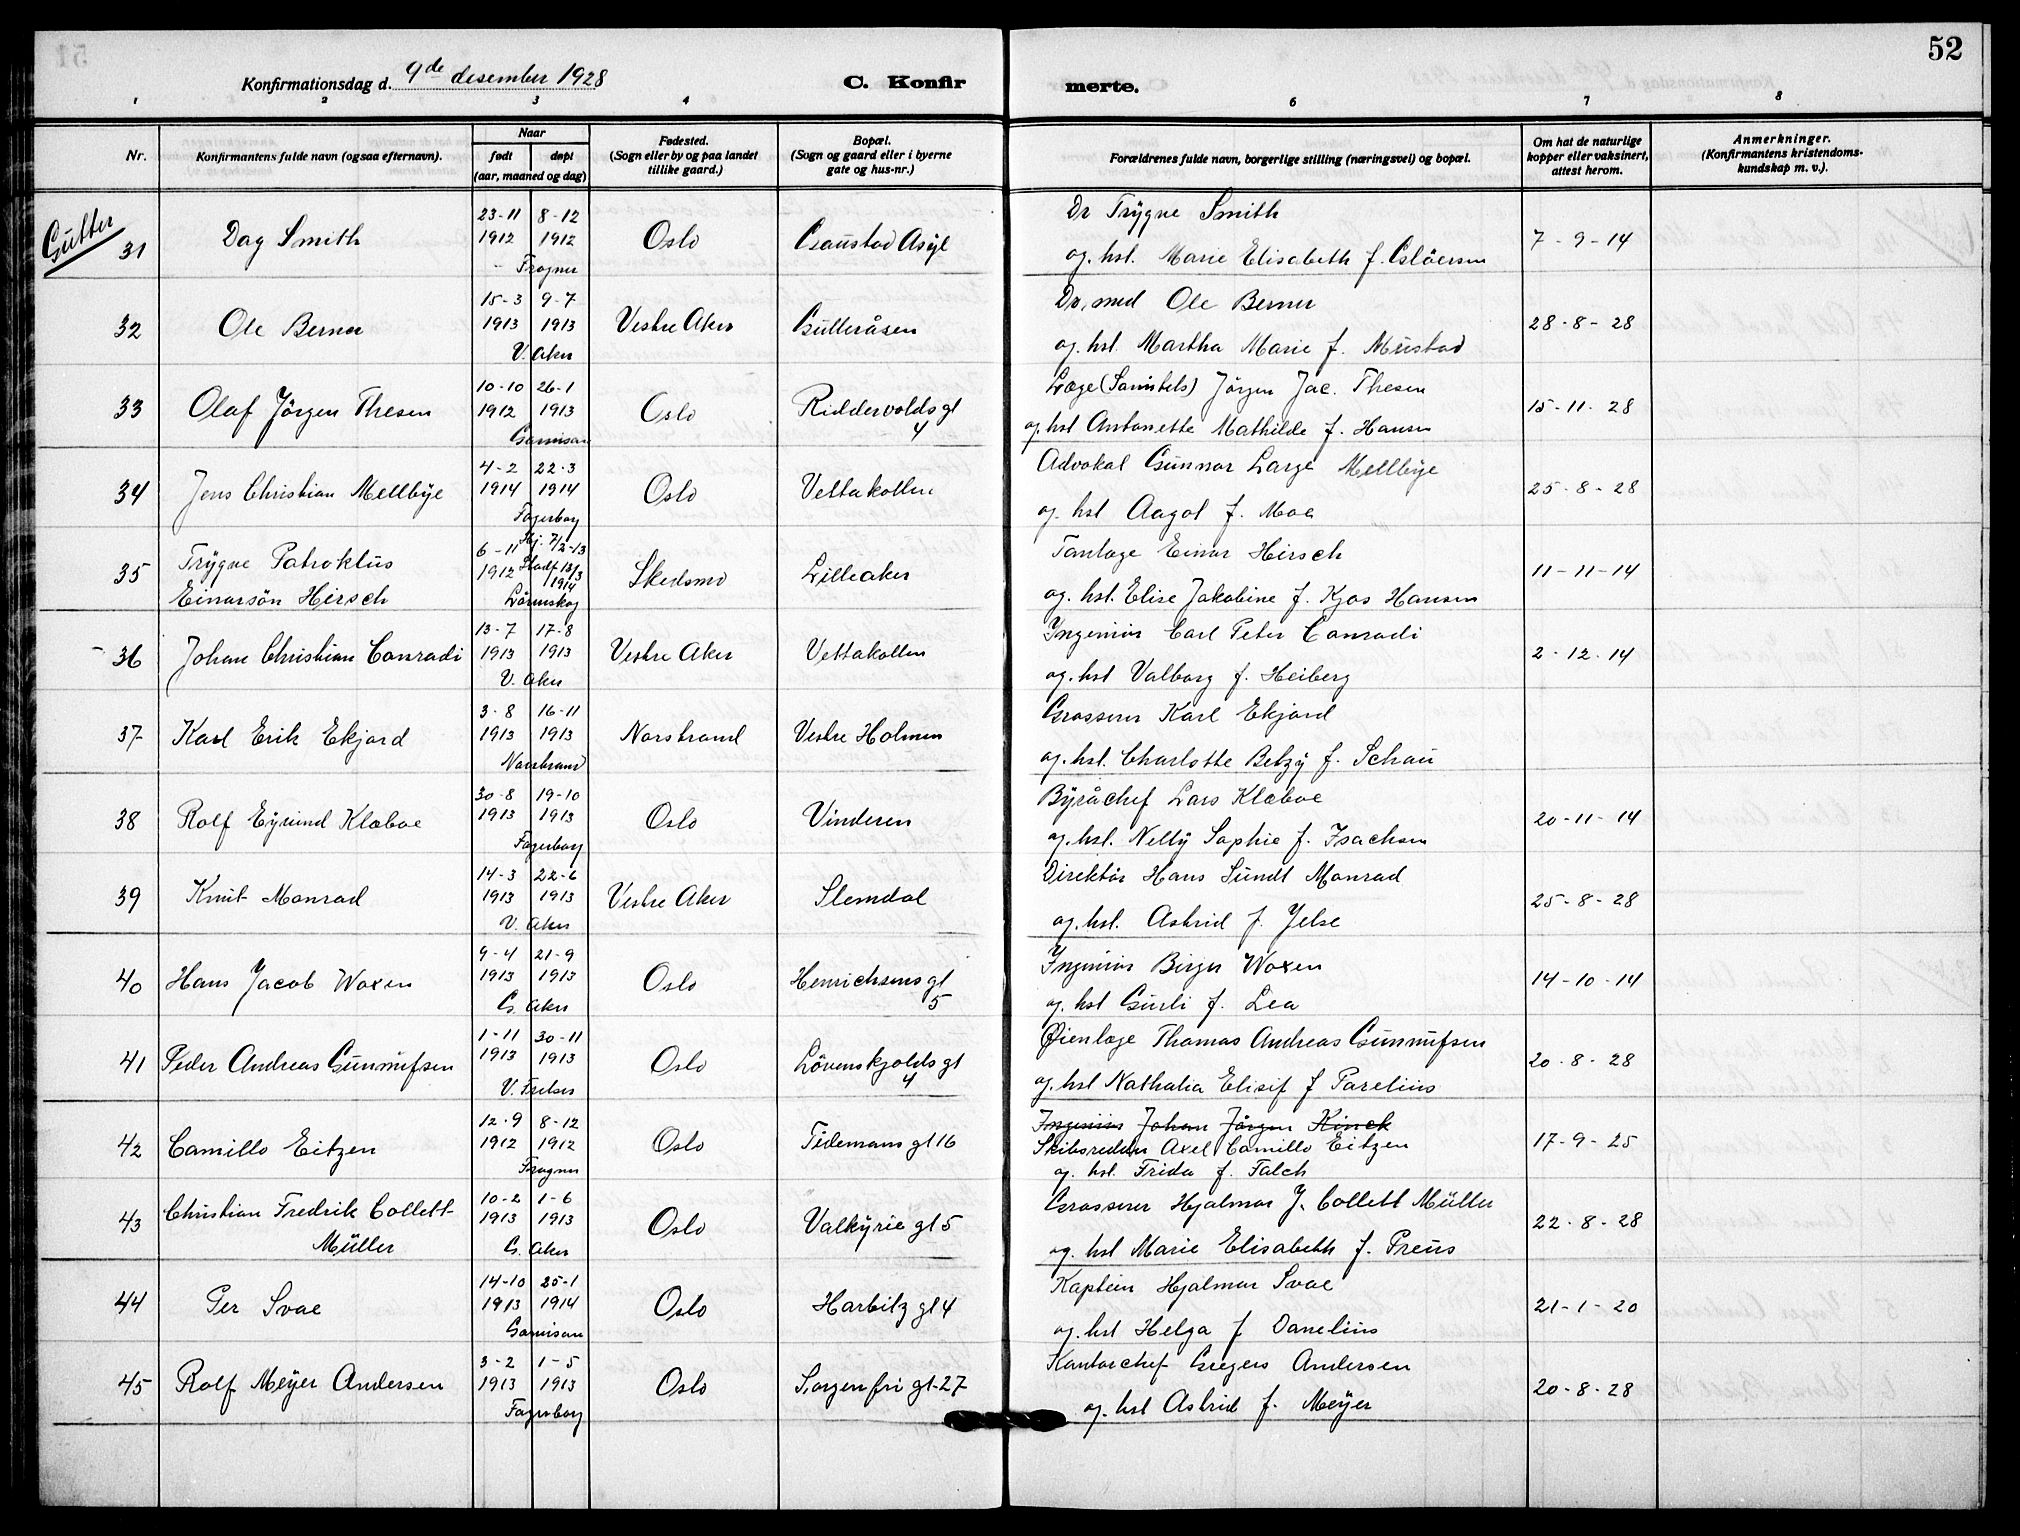 52
Konfirmationsdag d. 9de desember 1928
C. Konfirmerte.
1 2 3 4 6 7 8
Nr.
Konfirmantens fulde navn (ogsaa efternavn).
Naar
født
døpt
(aar, maaned og dag)
Fødested.
(Sogn eller by og paa landet
tillike gaard.)
Bopæl.
(Sogn og gaard eller i byerne
gate og hus-nr.)
Forældrenes fulde navn, borgerlige stilling (næringsvei) og bopæl.
Om hat de naturlige
kopper eller vaksinert,
attest herom.
Anmerkninger.
(Konfirmantens kristendoms-
kundskap m. v.).
Gutter
31 Dag Smith 23-11 1912 8-12 1912 Frogner Oslo Gaustad Asyl
Dr Trygve Smith
og. hst. Marie Elisabeth f. 7-9-14
32 Ole Berner 15-3 1913 9-7 1913 V. Aker Vestre Aker Gulleråsen
Dr. med Ole Berner
og. hst. Martha Marie f. Mustad 28-8-28
33 Olaf Jörgen Thesen 10-10 1912 26-1 1913 Garnison Oslo Riddervolds gt 4
Læge (Sanitets) Jörgen Jac. Thesen
og. hst Antonette Mathilde f. Hansen 15-11-28
34 Jens Christian Mellbye 4-2 1914 22-3 1914 Fagerborg Oslo Vettakollen
Advokat Gunnar Large Mellbye
og. hst Aagot f. Moe 25-8-28
35 Trygve Patroklus
Einarsön Hirsch 6-11 1912 Hj. 7/2-13 Stadf 13/3 1914 Lörenskog Skedsmo Lilleaker
Tanlæge Einar Hirsch
og. hst. Elise Jakobine f. Kjos Hansen 11-11-14
36 Johan Christian Conradi 13-7 1913 17-8 1913 V. Aker Vestre Aker Vettakollen
Ingeniör Carl Peter Conradi
og. hst Valborg f. Heiberg 2-12-14
37 Karl Erik Ekjord 3-8 1913 16-11 1913 Norstrand Norstrand Vestre Holmen
Grosserer Karl Ekjord
og. hst. Charlotte Betzy f. Schau
38 Rolf Eyvind Klæboe 30-8 1913 19-10 1913 Fagerborg Oslo Vinderen
Byråchef Lars Klæboe
og. hst. Nelly Sophie f. Isachsen 20-11-14
39 Knut Monrad 14-3 1913 22-6 1913 V. Aker Vestre Aker Slemdal
Direktör Hans Sundt Monrad
og. hst. Astrid f. Jelse 25-8-28
40 Hans Jacob Woxen 9-4 1913 21-9 1913 G. Aker Oslo Henrichsens gt 5
Ingeniör Birger Woxen
og. hst Gurli f. Lea 14-10-14
41 Peder Andreas Gunnufsen 1-11 1913 30-11 1913 V. Frelser Oslo Lövenskjolds gt 4
Øienlæge Thomas Andreas Gunnufsen
og. hst Nathalia Elisif f Parelius 20-8-28
42 Camillo Eitzen 12-9 1912 8-12 1912 Frogner Oslo Tidemans gt 16
Ingeniör Johan Jörgen Kinck
Skibsreder Axel Camillo Eitzen
og. hst. Frida f. Falch 17-9-25
43 Christian Fredrik Collett
Müller 10-2 1913 1-6 1913 G. Aker Oslo Valkyrie gt 5
Grosserer Hjalmar J. Collett Müller
og. hst Marie Elisabeth f. Preus 22-8-28
44 Per Svae 14-10 1913 25-1 1914 Garnison Oslo Harbitz gt 4
Kaptein Hjalmar Svae
og. hst Helga f Danelius 21-1-20
45 Rolf Meyer Andersen 3-2 1913 1-5 1913 Fagerborg Oslo Sorgenfri gt-27
Kontorchef Gregers Andersen
og. hst Astrid f. Meyer 20-8-28